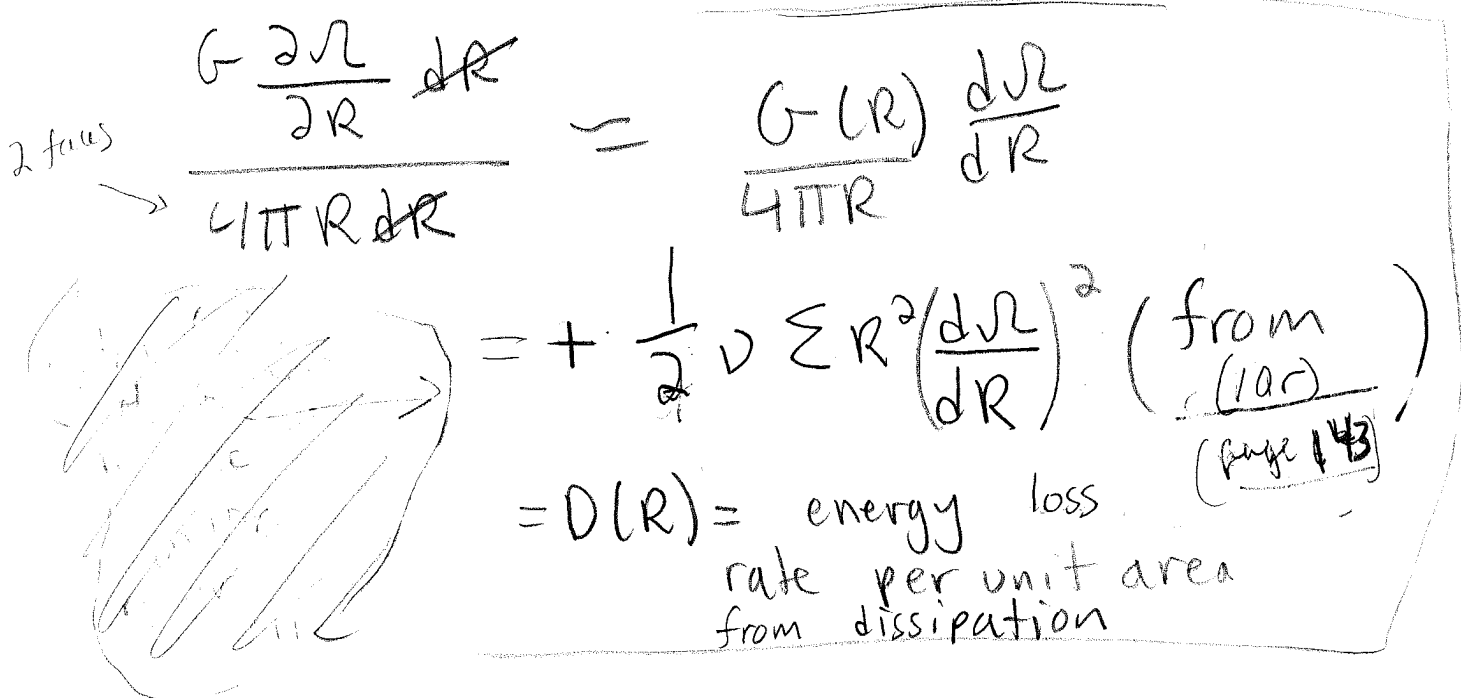 G ∂Ω/∂R dR / 4πR dR = G(R)/4πR dΩ/dR
2 faces
= + 1/2 ν Σ R² (dΩ/dR)² (from
(page 143)
= D(R) = energy loss
rate per unit area
from dissipation